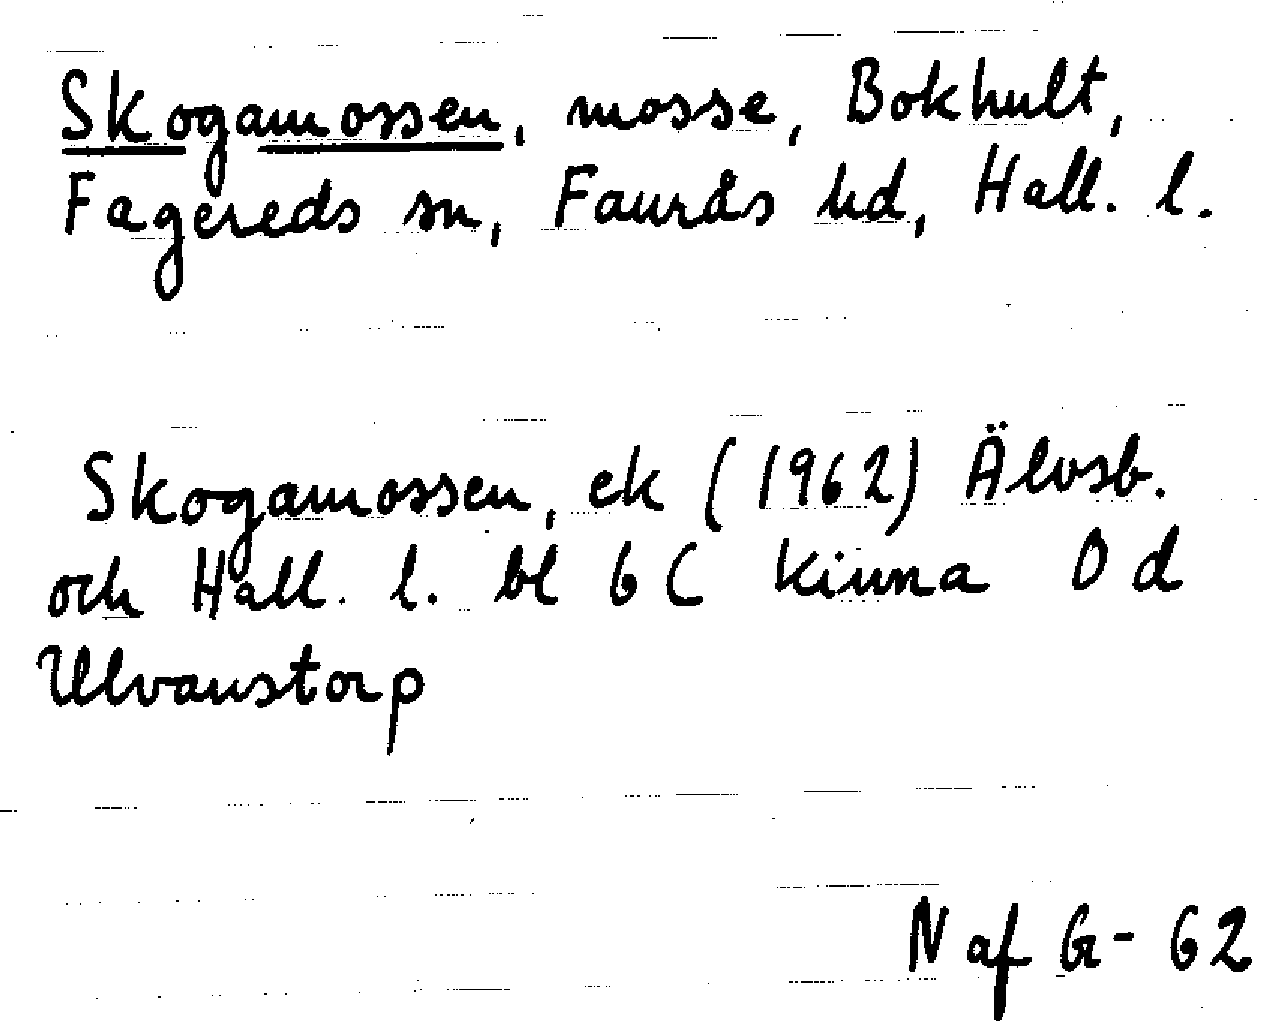 Skogamossen, mosse, Bokhult,
Fagereds sn, Faurås hd, Hall. l.
Skogamossen, ek (1962) Älvsb.
och Hall. l. bl 6 C Kinna 0 d
Ulvanstorp
N af G- 62